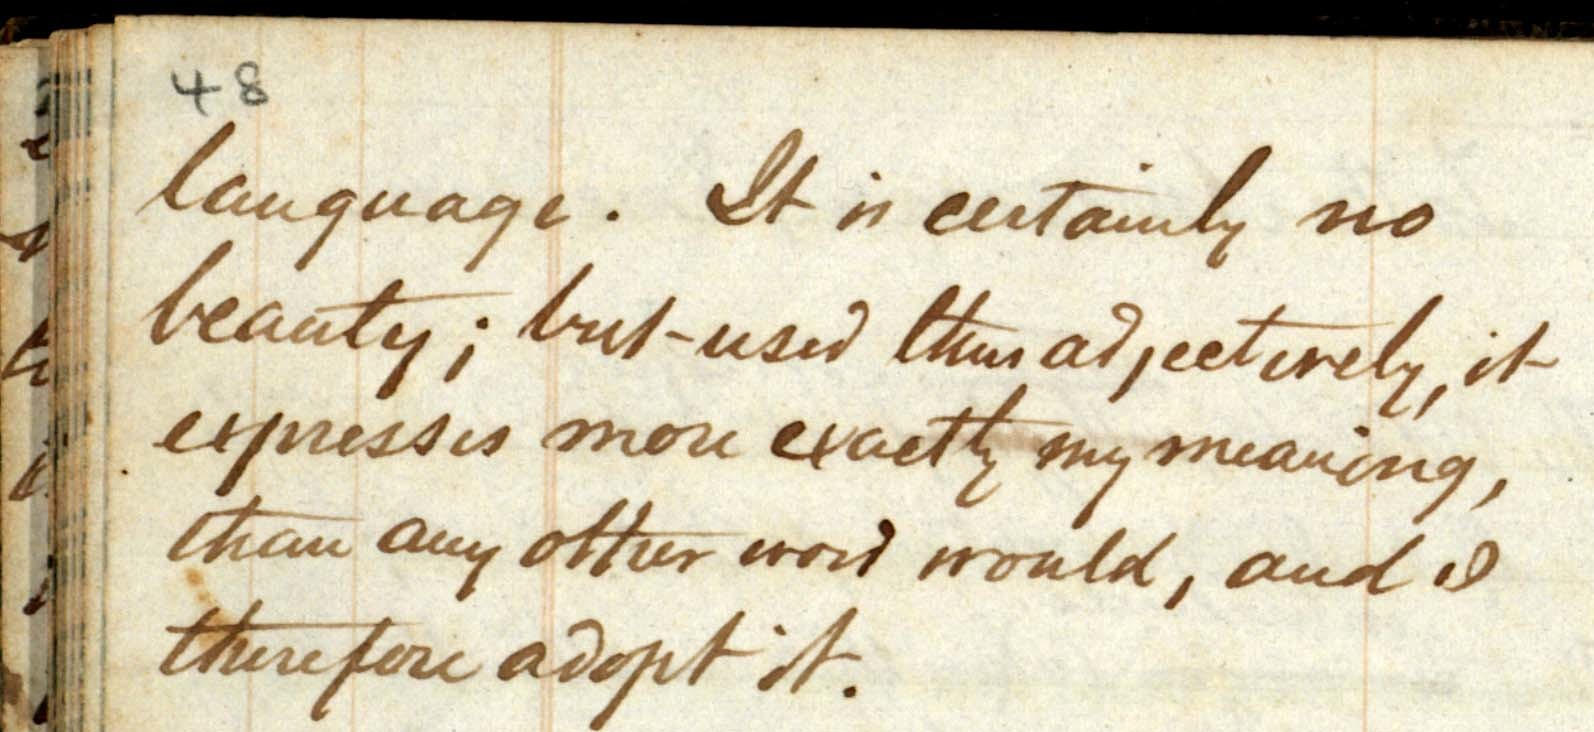 48
language. It is certainly no
beauty; but used thus adjectively, it
expresses more exactly my meaning,
than any other word would, and I
therefore adopt it.